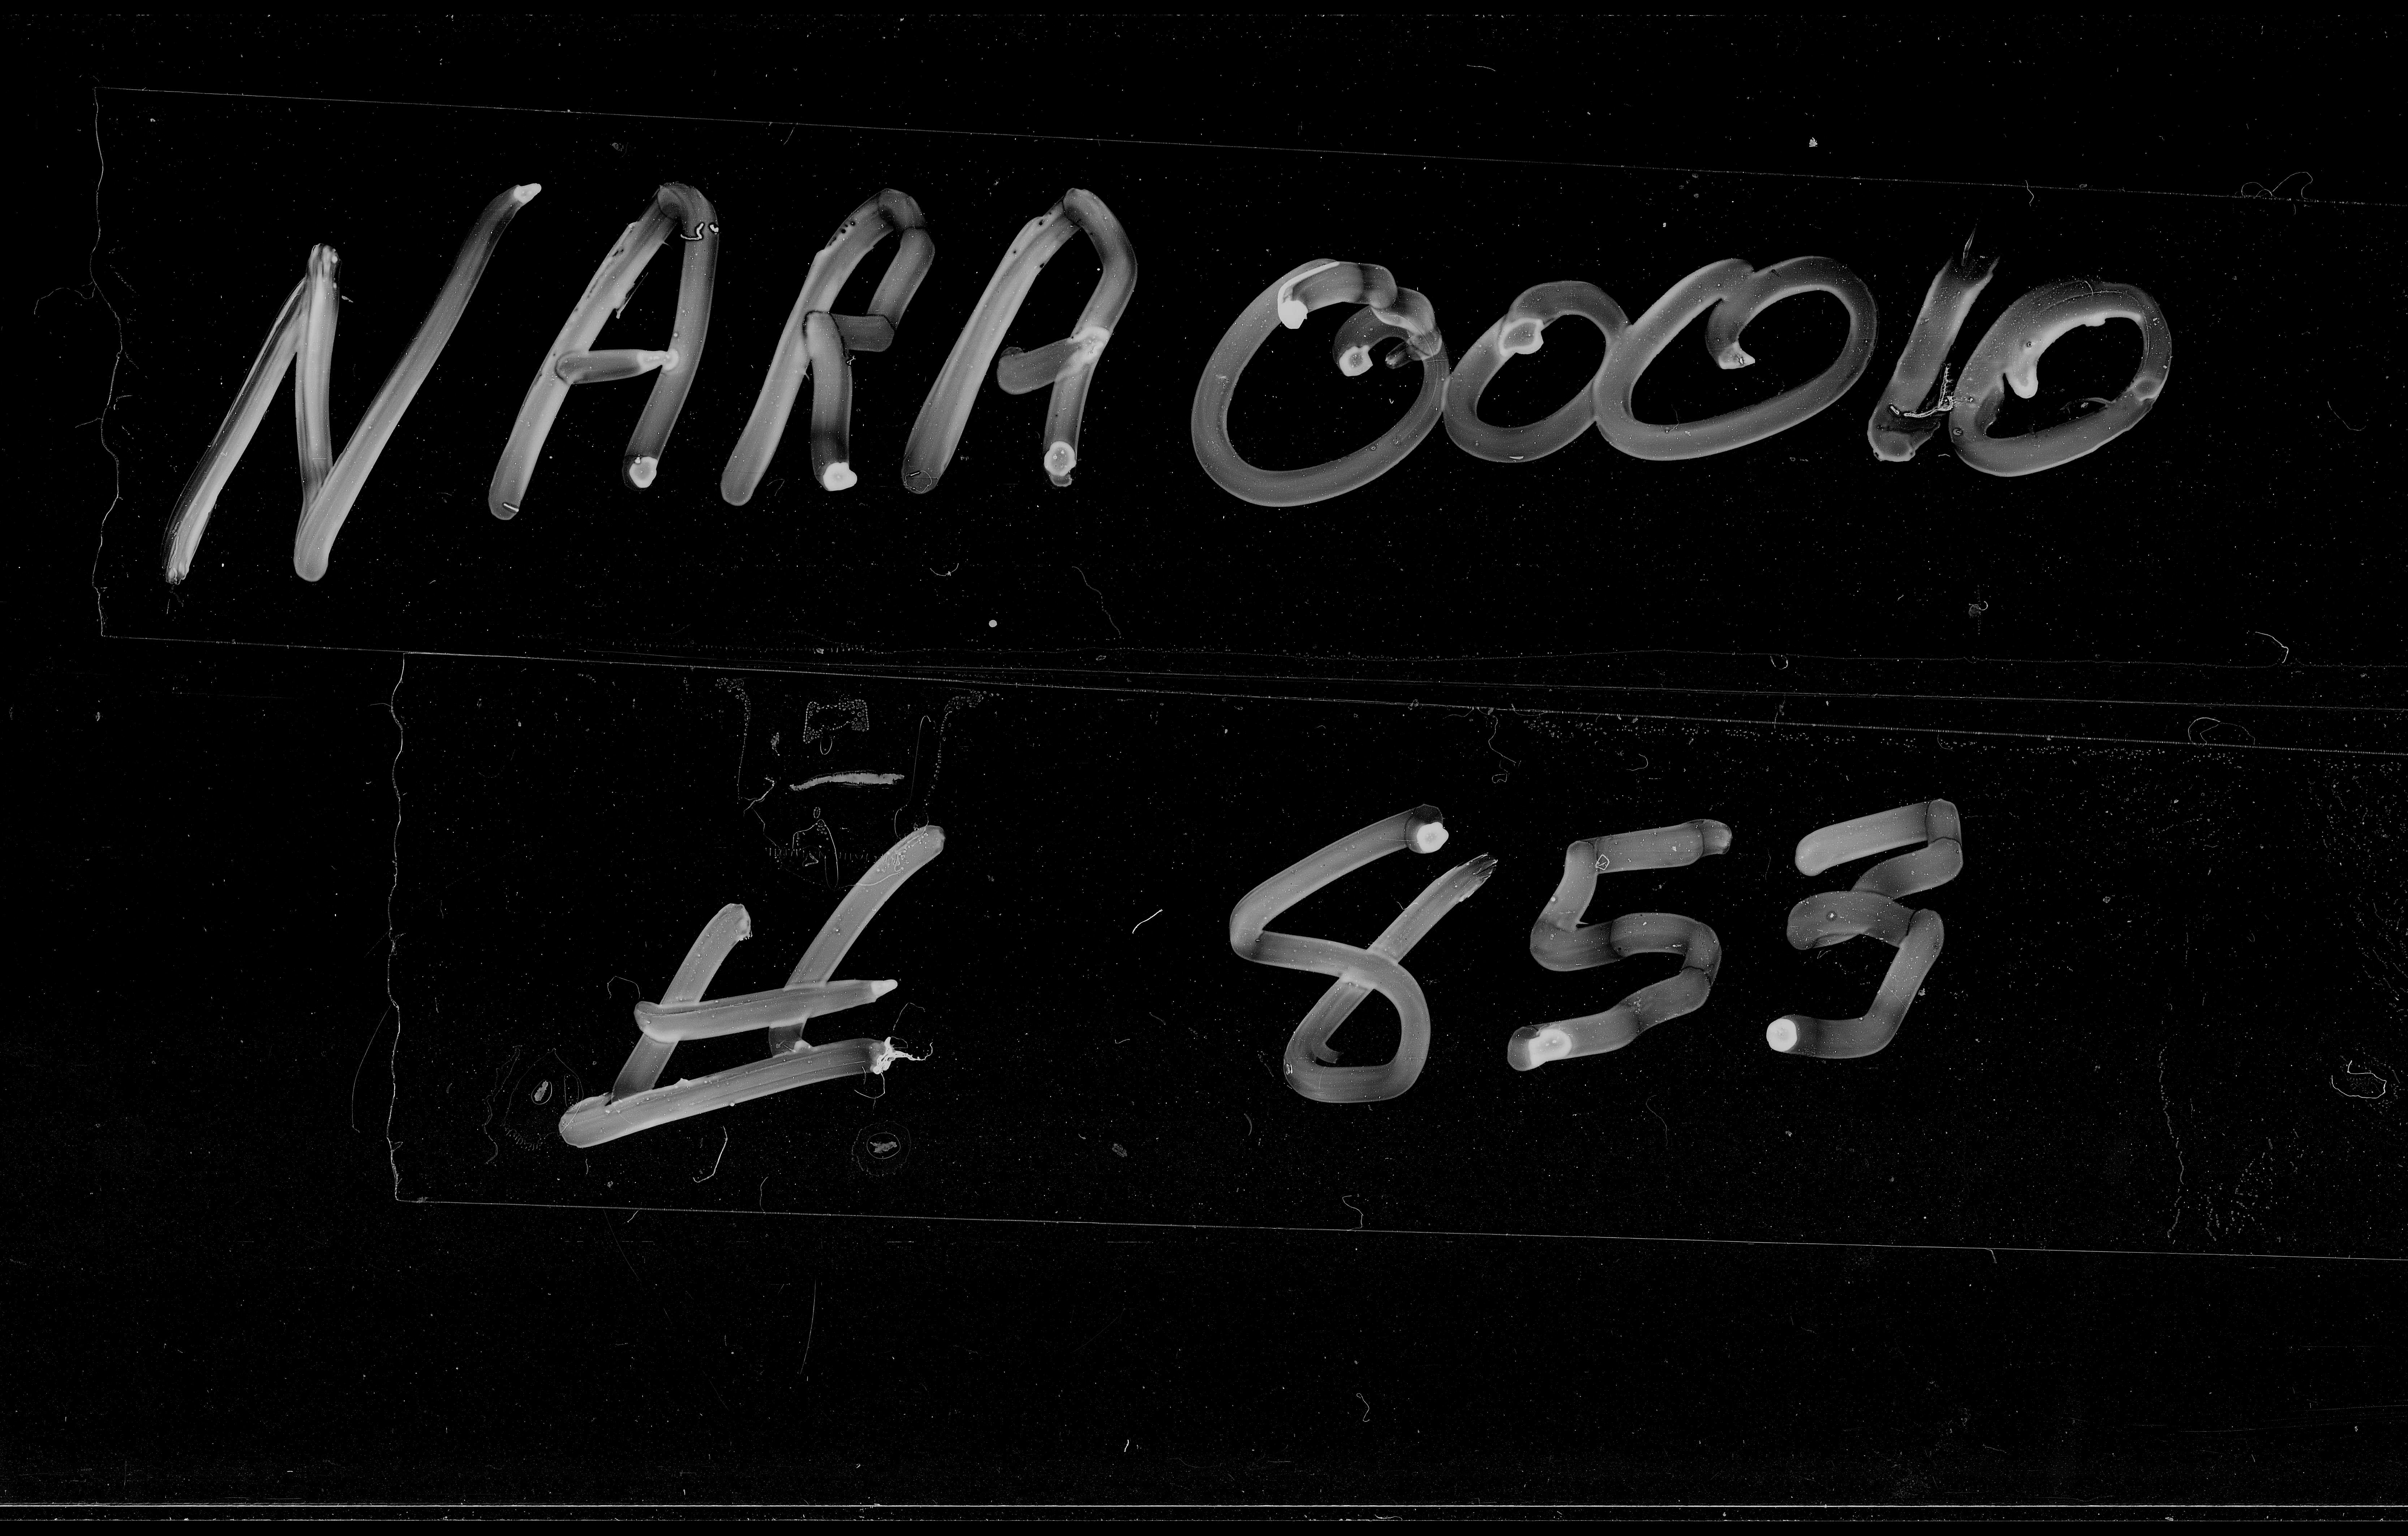 NARA 00010
# 853